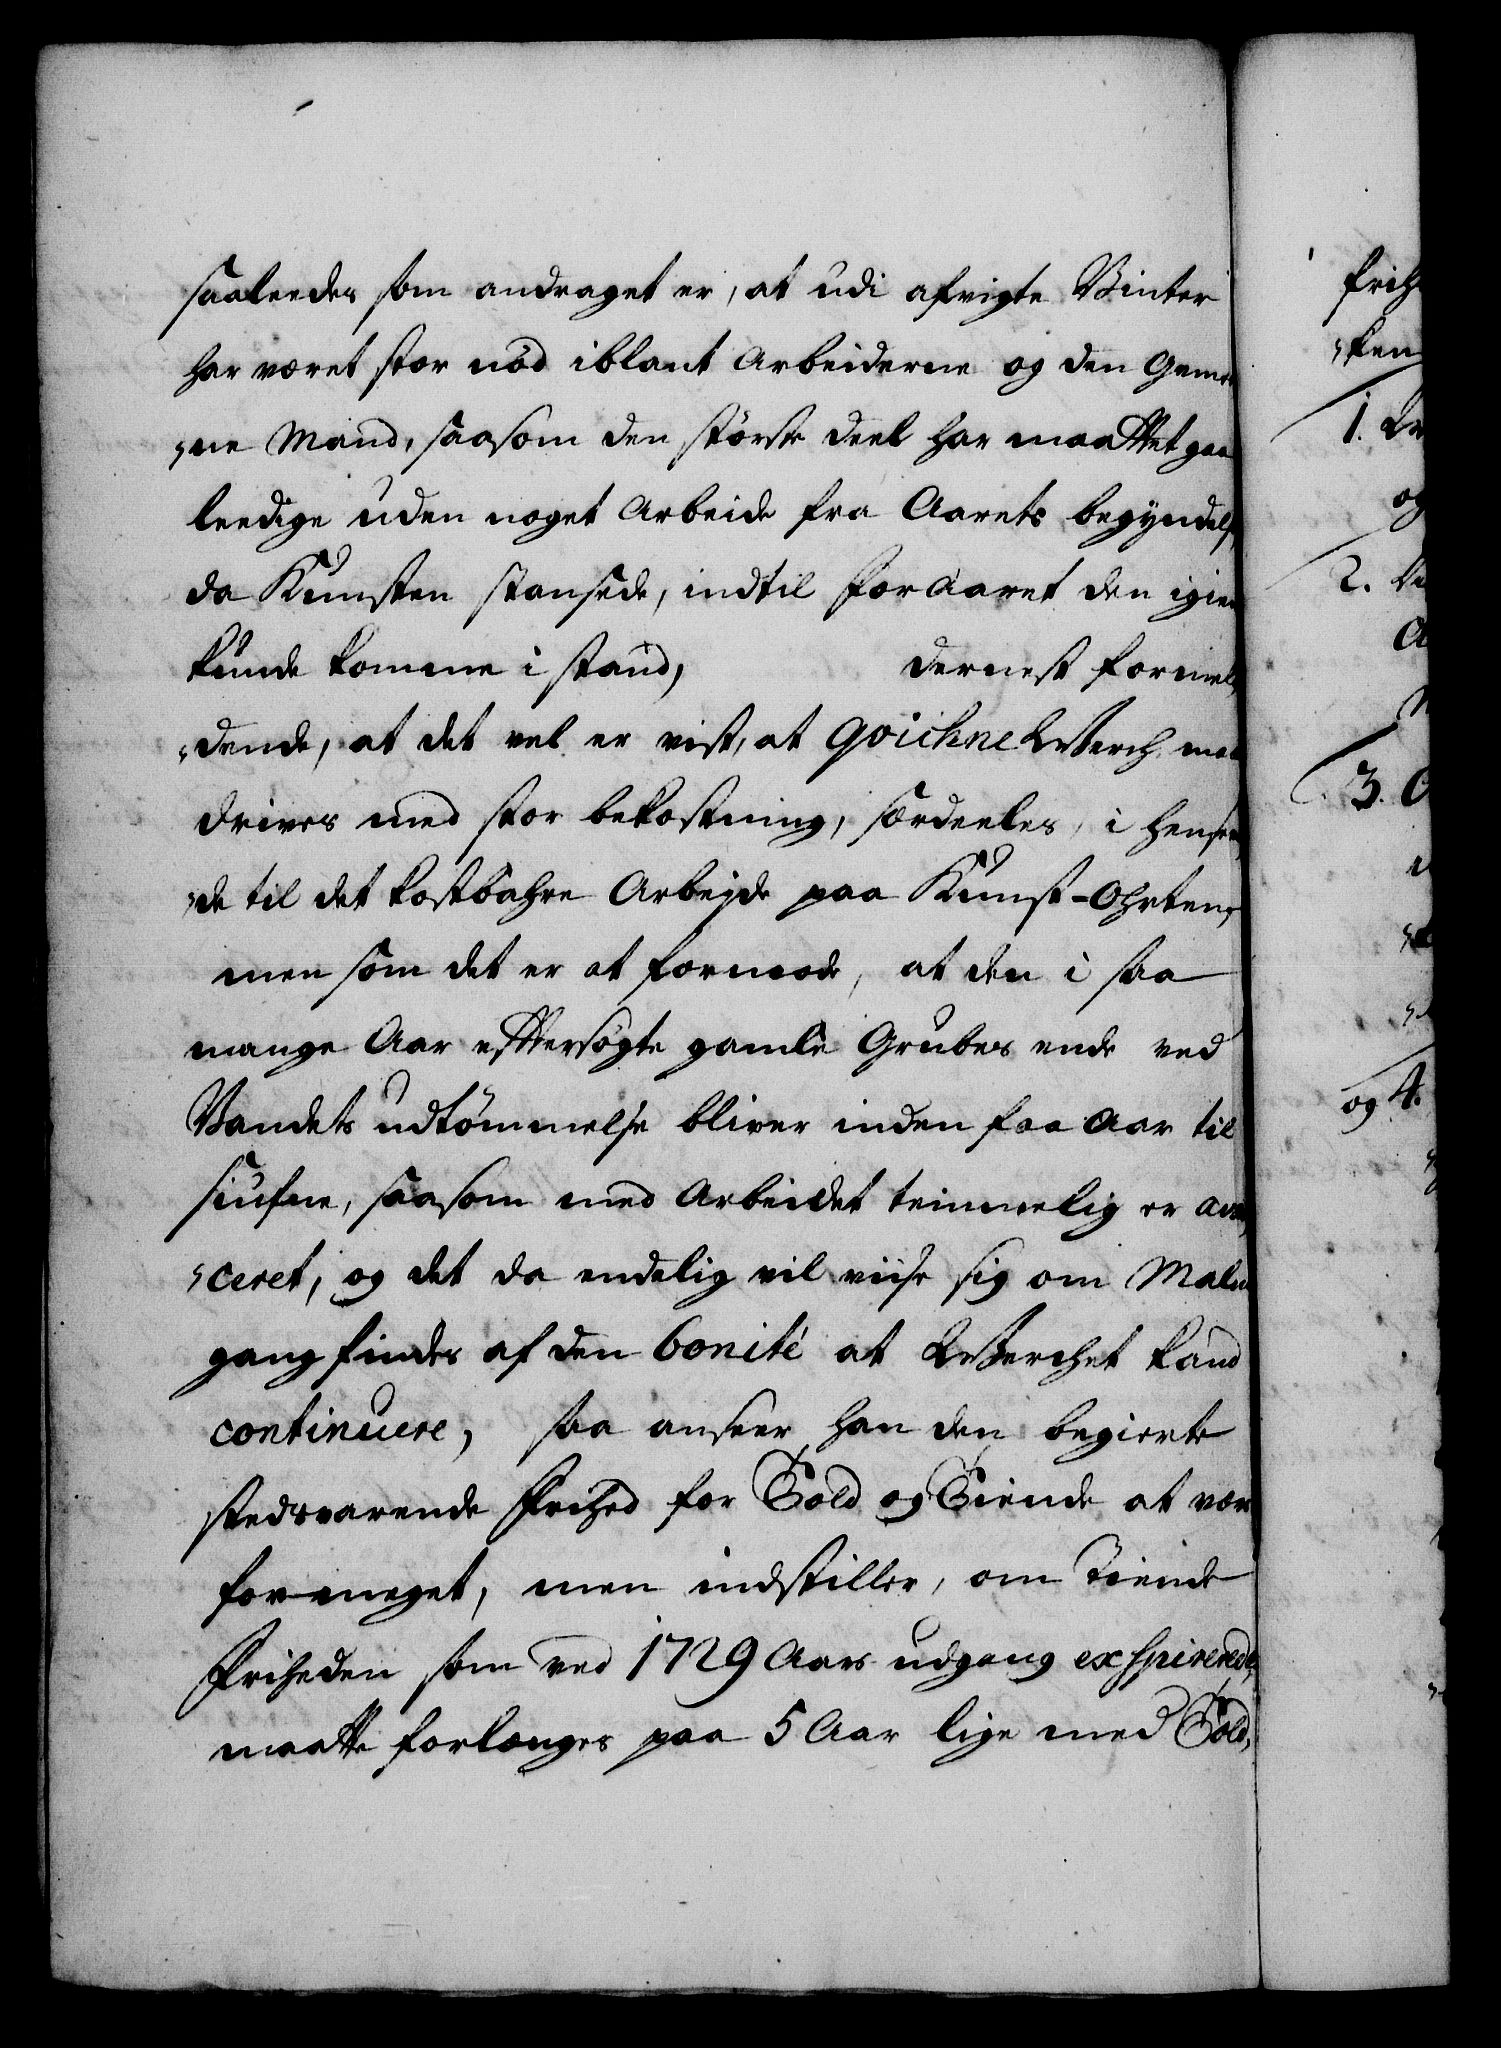 saaleedes som andraget er, at udi afvigte Vinter
har været stor nöd iblant Arbeiderne og den Geme
ne Mand, saasom den störste deel har maattet gaa
leedige uden noget Arbeide fra Aarets begyndels
da Kunsten stansede, indtil foraaret den igien
kunde komme i stand, dernest formel
dende, at det vel er vist, at Qvickne Werch maa
drives med stor bekostning, særdeeles, i hensee
de til det kostbahre Arbejde paa Kunst-Ohrten,
men som det er at formode, at den i saa
mange Aar efttersögte gamle Grubes ende ved
Vandets udtömmelse bliver inden faa Aar til
siufne, saasom med Arbeidet temmelig er avan
ceret, og det da endelig vil viise sig om Malm
gang findes af den bonité at Werchet kand
continuere, saa anseer han den begierte
stedsvarende Frihed for Told og Tiende at være
for meget, men indstiller, om Tiende
Friheden som ved 1729 Aars udgang exspirerede,
maatte forlænges paa 5 Aar lige med Told,
frihe
ken
1.
og
2.
3.
og 4.